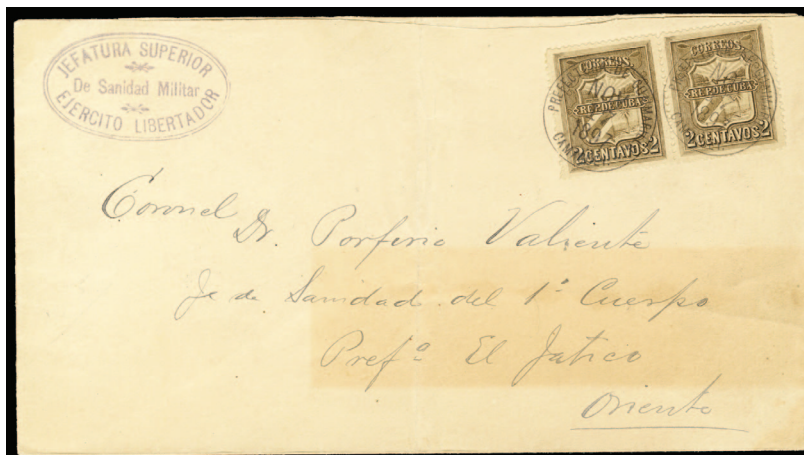 JEFATURA SUPERIOR
De Sanidad Militar
EJERCITO LIBERTADOR
CORREOS.
REP. DE CUBA
2 CENTAVOS 2
CORREOS.
REP. DE CUBA
2 CENTAVOS 2
NOV
1897
Coronel
Dr. Porfirio Valiente
Je de Sanidad del 1º Cuerpo
Prefª El Jatico
Oriente